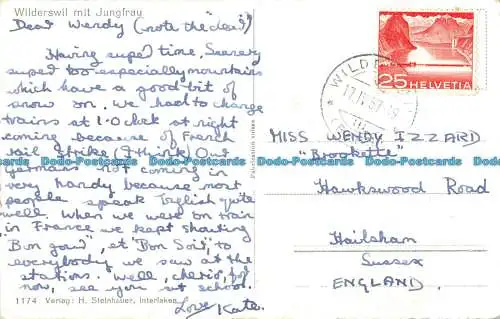 Wilderswil mit Jungfrau
Dear Wendy (note the "dear")
Having super time. Scenery
super too especially mountains
which have a good bit of
snow on. We had to change
trains at 1.0'clock at night
coming because of French
rail strike (I think) Our
Germans not coming in
very handy because most
people speak English quite
well. When we were on train
in France we kept shouting
"Bon jour", at "Bon Soir", to
everybody we saw at the
stations. Well, cherio, for
now, see you at school.
Love Kate.
1174 Verlag: H. Steinhauer, Interlaken
25 HELVETIA
WILDERSWIL
17.IV.57
MISS WENDY IZZARD
"Brookette"
Hawkswood Road
Hailsham
Sussex
ENGLAND.
Dodo-Postcards Dodo-Postcards Dodo-Postcards Dodo-Postcards